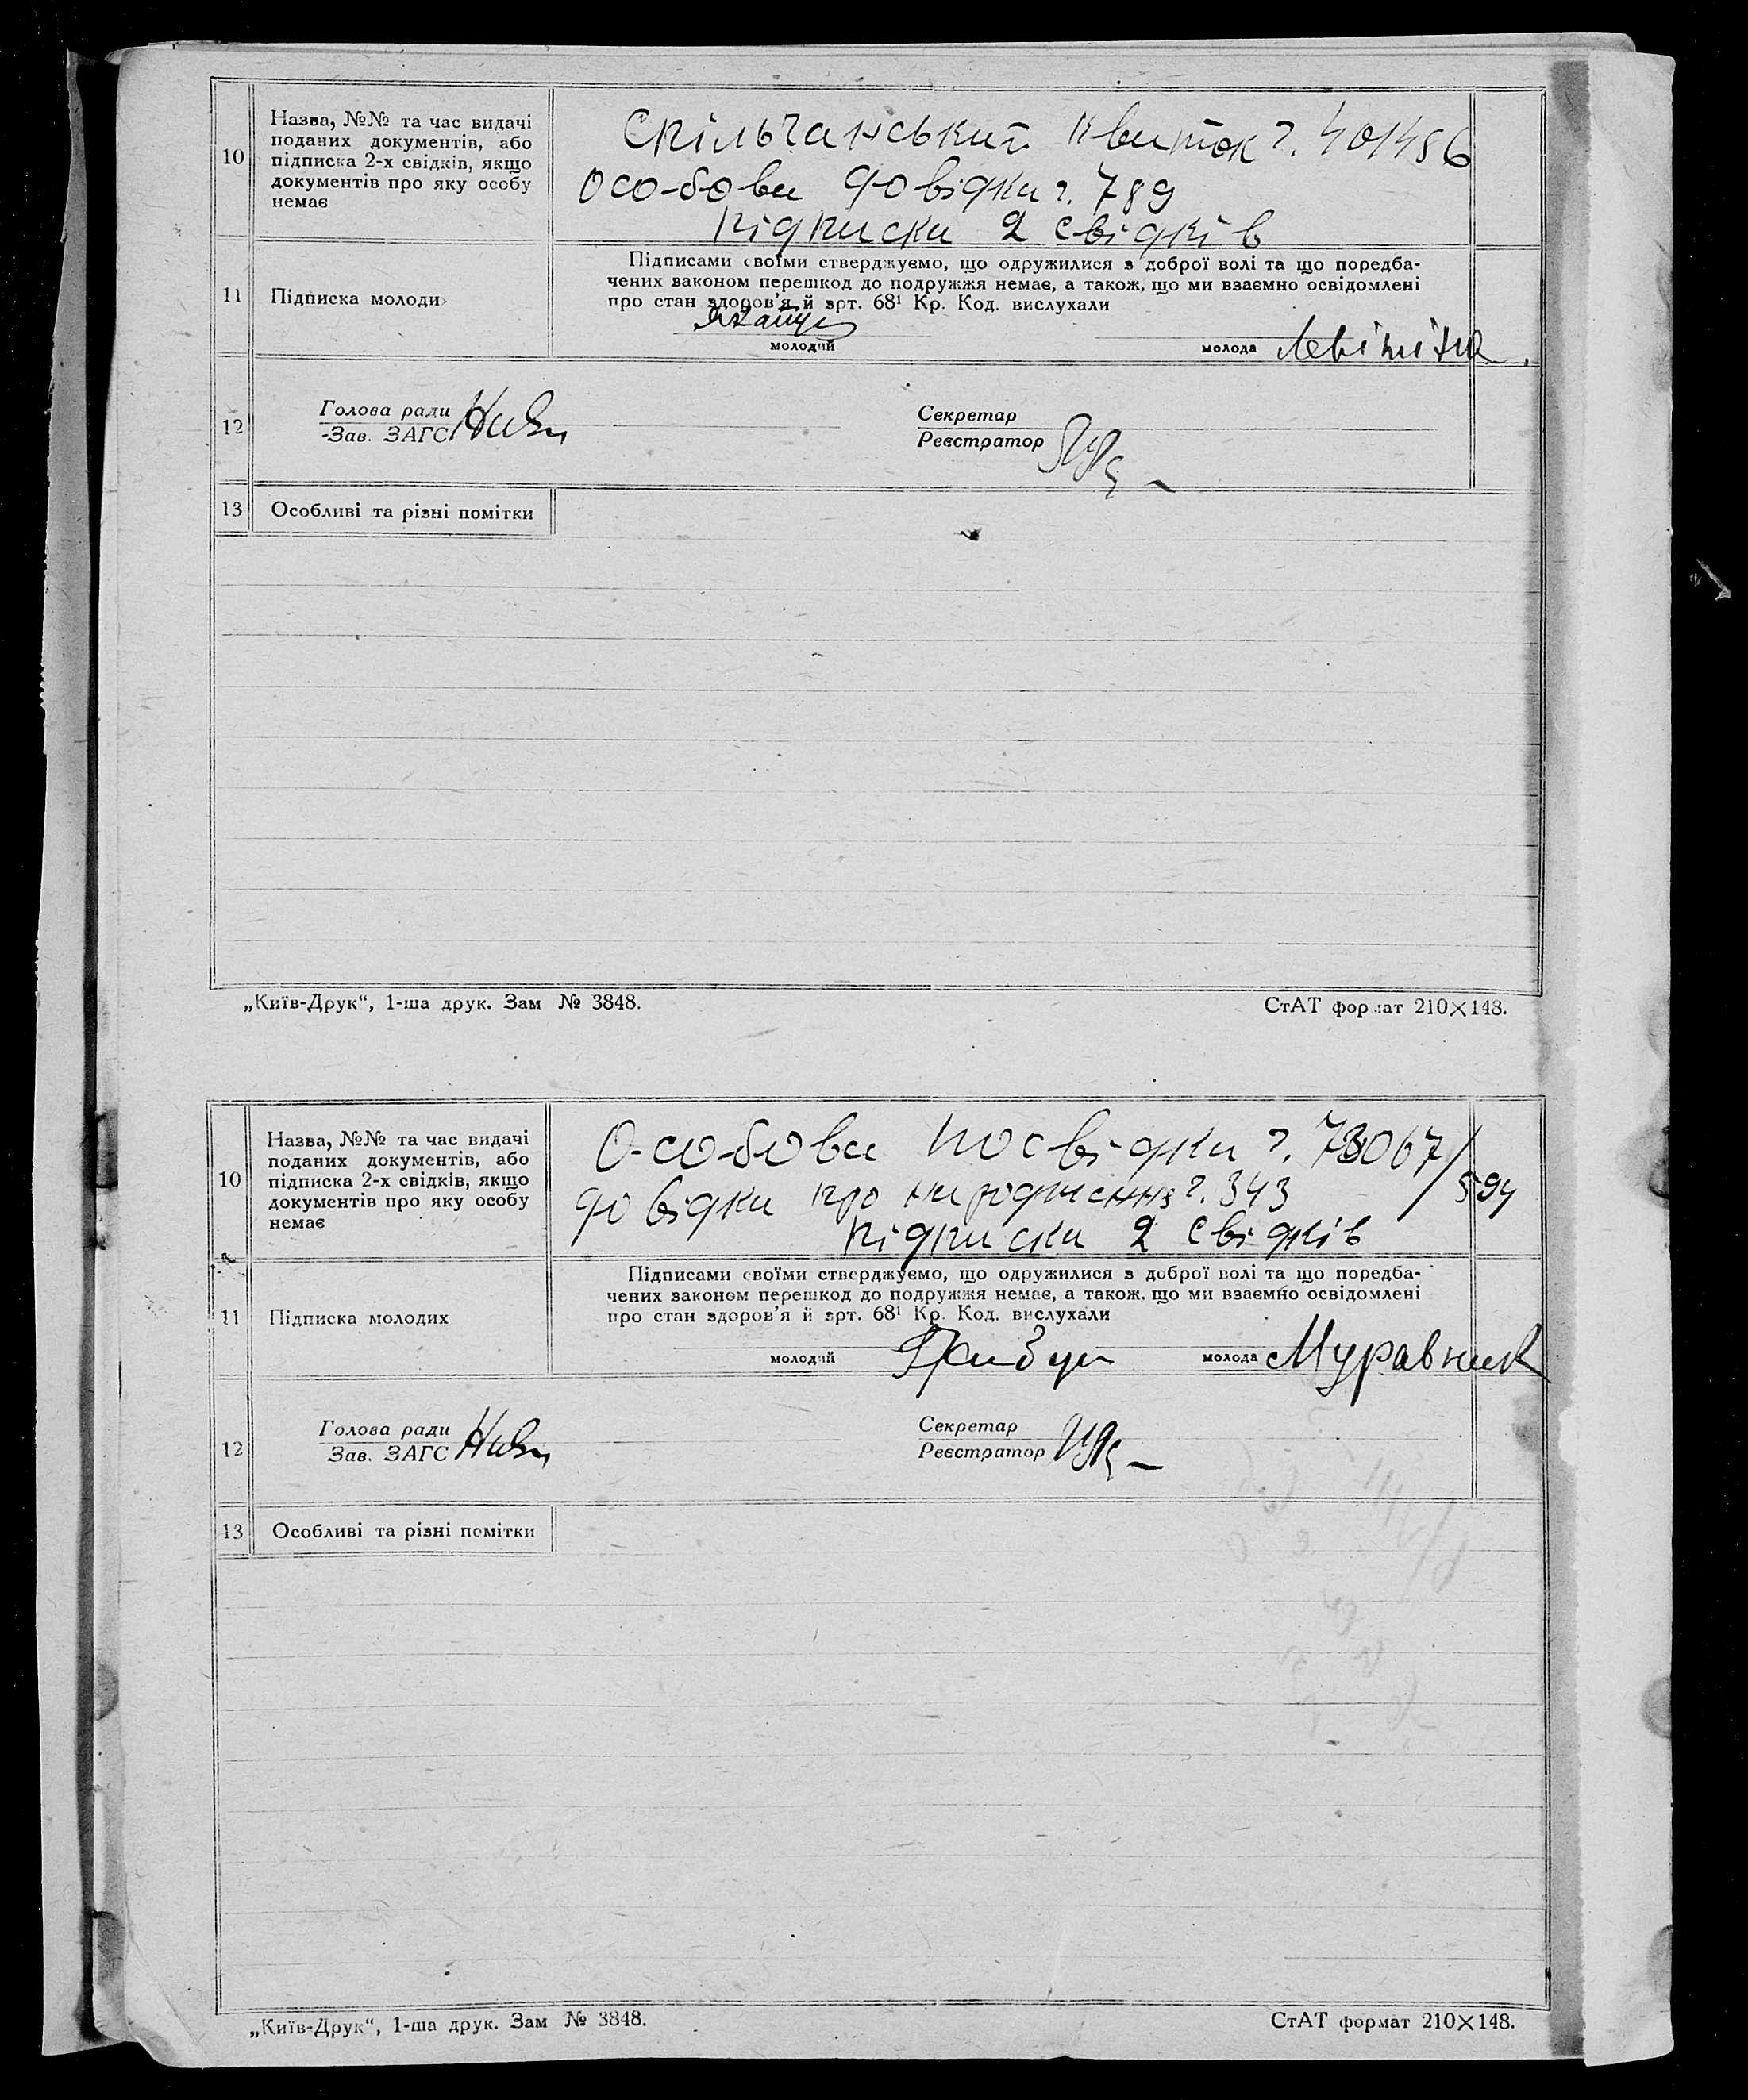 10
Назва, №№ та час видачі
поданих документів, або
підписка 2-х свідків, якщо
документів про яку особу
немає
Спільчанський квиток ч. 401486
Особова довідка ч. 789
Підписка 2 свідків
11
Підписка молоди
Підписами своїми стверджуємо, що одружилися з доброї волі та що поредба-
чених законом перешкод до подружжя немає, а також, що ми взаємно освідомлені
про стан здоров'я й арт. 68¹ Кр. Код. вислухали
молодий
молода
12
Голова ради
Зав. ЗАГС
Секретар
Реєстратор
13
Особливі та різні помітки
„Київ-Друк“, 1-ша друк. Зам № 3848.
СтАТ формат 210×148.
10
Назва, №№ та час видачі
поданих документів, або
підписка 2-х свідків, якщо
документів про яку особу
немає
Особова посвідка ч. 73067/594
довідка про народження ч. 343
Підписка 2 свідків
11
Підписка молодих
Підписами своїми стверджуємо, що одружилися з доброї волі та що поредба-
чених законом перешкод до подружжя немає, а також, що ми взаємно освідомлені
про стан здоров'я й арт. 68¹ Кр. Код. вислухали
молодий
молода Муравник
12
Голова ради
Зав. ЗАГС
Секретар
Реєстратор
13
Особливі та різні помітки
„Київ-Друк“, 1-ша друк. Зам № 3848.
СтАТ формат 210×148.